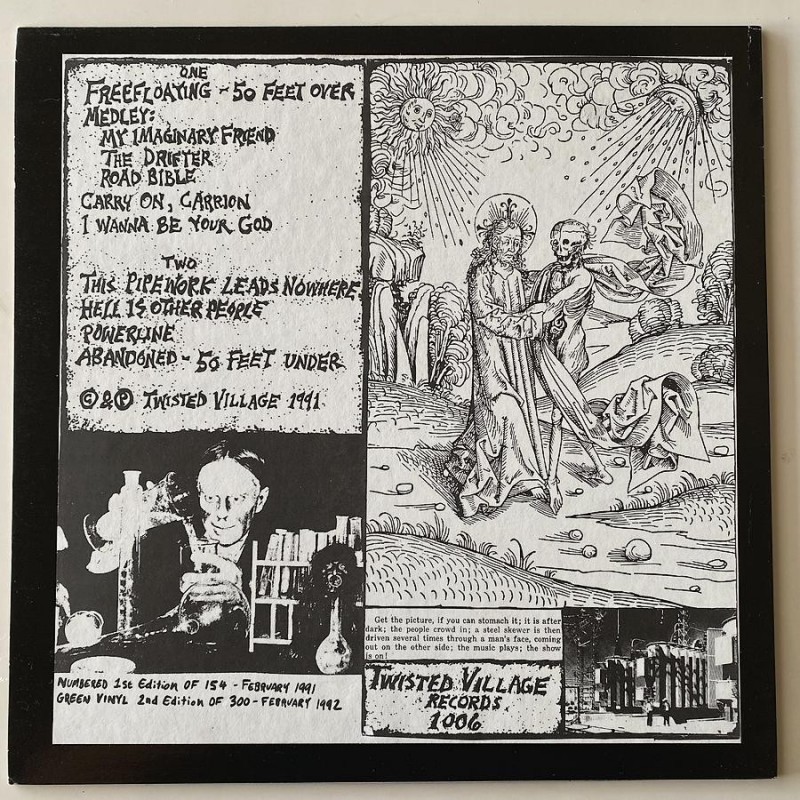 ONE
FREEFLOATING - 50 FEET OVER
MEDLEY:
MY IMAGINARY FRIEND
THE DRIFTER
ROAD BIBLE
CARRY ON, CARRION
I WANNA BE YOUR GOD
TWO
THIS PIPEWORK LEADS NOWHERE
HELL IS OTHER PEOPLE
POWERLINE
ABANDONED - 50 FEET UNDER
© & ℗ TWISTED VILLAGE 1991
NUMBERED 1st Edition OF 154 - FEBRUARY 1991
GREEN VINYL 2nd Edition OF 300 - FEBRUARY 1992
Get the picture, if you can stomach it; it is after
dark; the people crowd in; a steel skewer is then
driven several times through a man's face, coming
out on the other side; the music plays; the show
is on!
TWISTED VILLAGE
RECORDS
1006